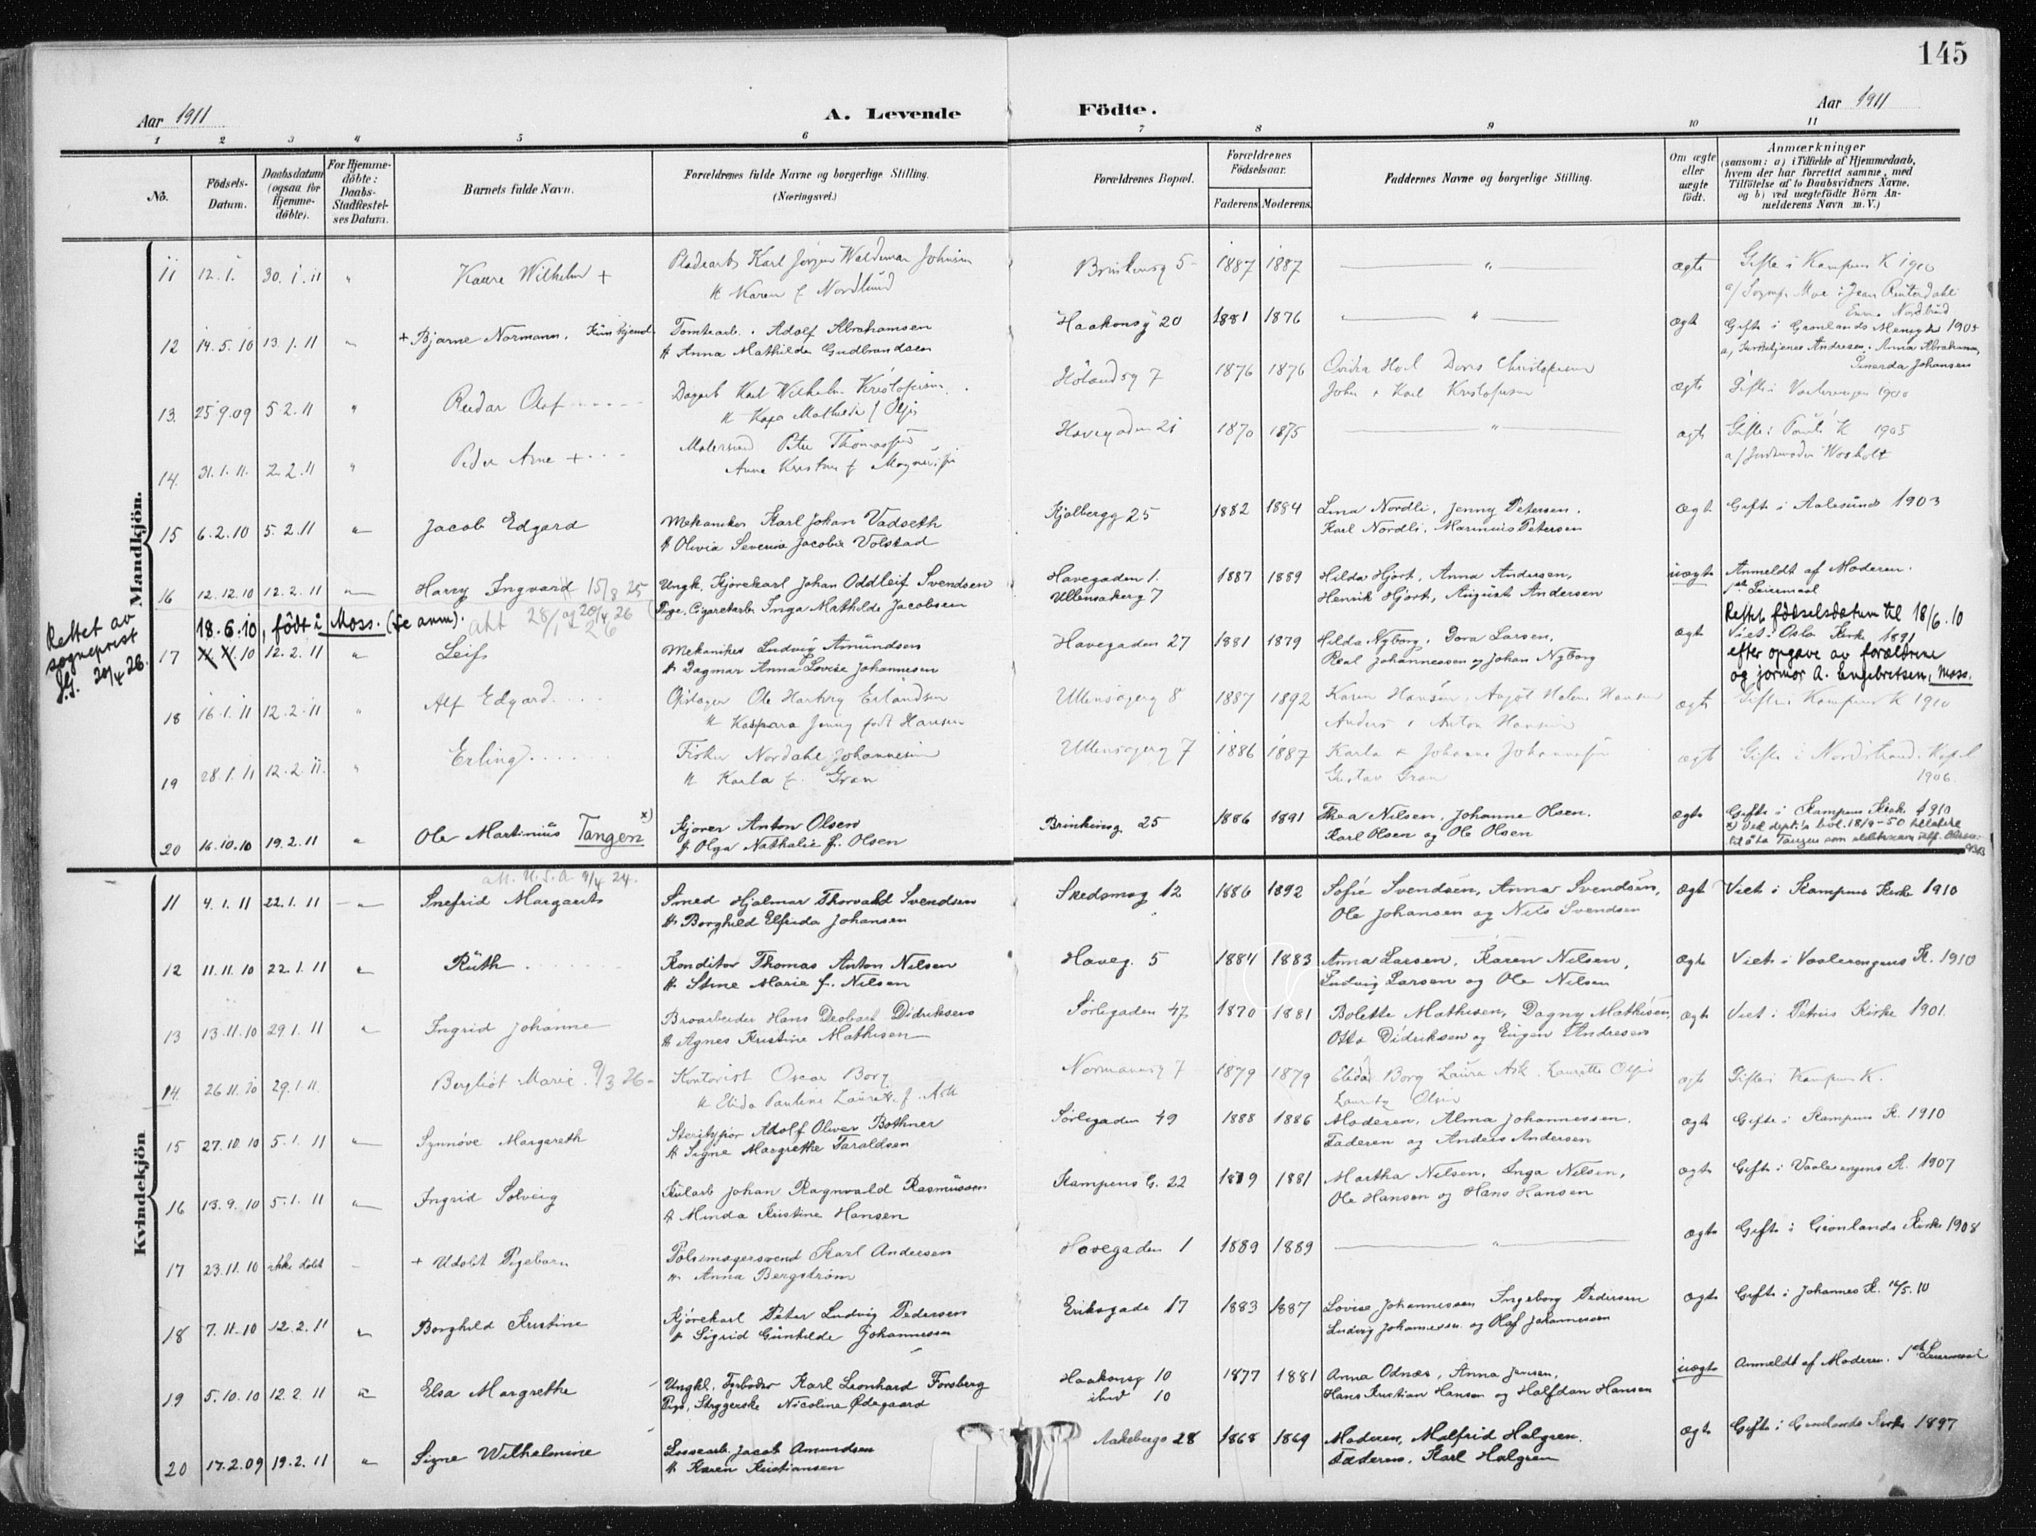 145
Aar 1911
A. Levende Födte.
Aar 1911
1 2 3 4 5 6 7 8 9 10 11
No.
Födsels-Datum.
Daabsdatum (ogsaa for Hjemmedöbte).
For Hjemmedöbte: Daabs-Stadfæstelses Datum.
Barnets fulde Navn.
Forældrenes fulde Navne og borgerlige Stilling. (Næringsvei.)
Forældrenes Bopæl.
Forældrenes Födselsaar.
Faderens Moderens
Faddernes Navne og borgerlige Stilling.
Om ægte eller uægte födt.
Anmærkninger
(saasom: a) i Tilfælde af Hjemmedaab, hvem der har forrettet samme, med Tilföielse af to Daabsvidners Navne, og b) ved uægtefödte Börn Anmelderens Navn m. V.)
Mandkjön.
11 12.1. 30.1.11 " Kaare Wilhelm + Karl Jørgen Waldemar Johnsen Brinkensg 5 1887 1887 " ægte Gifte i Kampens K 1910
Karen f. Nordlund
12 14.5.10 13.1.11 " + Bjarne Normann, Tomtearb. Adolf Abrahamsen Haakonsg 20 1881 1876 " ægte Gifte i Grønlands Menighed
Anna Mathilde Gudbrandsen
13. 25.9.09 5.2.11 " Reidar Olaf Dagarb Karl Wilhelm Kristofersen Hølandsg 7 1876 1876 ægte Gifte i Vaalerengen 1900
John + Karl Kristofersen
14. 31.1.11. 2.2.11 " Peder Arne + Malersvend Peter Thomassen Havegaden 21 1870 1875 " ægte Gifte i K 1905
15 6.2.10 5.2.11 " Jacob Edgard Mekaniker Karl Johan Vadseth Kjølbergg 25 1882 1884 Lina Nordli, Jenny Petersen. ægte Gifte i Aalesund 1903
Olivia Severine Jacobie Volstad Karl Nordli, Marinius Petersen
16 12.12.10 12.2.11 " Harry Ingvard 15/8 25 Ungk. Kjørekarl Johan Oddleif Svendsen Havegaden 1. 1887 1889 Hilda Hjort, Anna Andersen, uægte Anmeldt af Moderen.
Pige, Cigaretarb. Inga Mathilde Jacobsen Ullensakerg 7 Henrik Hjort, August Andersen 1ste Leiermaal
Rettet av sogneprest 20/4 26.
18.6.10, født i Moss. (se anm). att 28/1 og 20/4 26
17 10 12.2.11 " Leif Mekaniker Ludvig Amundsen Havegaden 27 1881 1879 Hilda Nyborg, Dora Larsen, ægte Rettet fødselsdatum til 18/6.10
Viet i Oslo Kirke 1891
Dagmar Anna Lovise Johannesen Johannessen og Johan Nyborg efter opgave av forældrene
og jormor A. Engebretsen, Moss.
18 16.1.11 12.2.11 " Alf Edgard Ole Hartvig Erlandsen Ullensagerg 8 1887 1892 Karen Hansen, Hansen ægte Gifte i Kampens K 1910
Kaspara Jenny født Hansen Anders + Anton Hansen
19 28.1.11 12.2.11. " Erling Fisker Nordahl Johannesen Ullensagerg 7 1886 1887 Karla + Johanne Johannesen ægte Gifte i Nordstrand Kapel
Karla f. Gran Gustav Gran 1906.
20 16.10.10 19.2.11 " Ole Martinius Tangen x) Kjører Anton Olsen Brinkensg 25 1886 1891 Thea Nilsen, Johanne Olsen. ægte Gifte i Kampens Kirke 1910
Olga Nathalie f. Olsen Karl Olsen og Ole Olsen
Kvindekjön
att. U.S.A. 9/4 24.
11 4.1.11 22.1.11 " Snefrid Margarits Smed Hjalmar Thorvald Svendsen Skedsmog 12 1886 1892 Sofie Svendsen, Anna Svendsen, ægte Viet i Kampens Kirke 1910
Borghild Elfrida Johansen Ole Johansen og Nils Svendsen
12 11.11.10 22.1.11 " Ruth Konditor Thomas Anton Nilsen Haveg. 5 1884 1883 Anna Larsen, Karen Nilsen, ægte Viet i Vaalerengens K. 1910
Stine Marie f. Nilsen Ludvig Larsen og Ole Nilsen
13 13.11.10 29.1.11 " Ingrid Johanne Broarbeider Hans Deobart Didriksens Sørligaden 47 1870 1881 Bolette Mathisen, Dagny Mathisen, ægte Viet i Petrus Kirke 1901.
Agnes Kristine Mathisen Otto Didriksen og Eugen Andresen
14. 26.11.10 29.1.11. Bergliot Marie. 9/3 26 Kontorist Oscar Borg Normannsg 7 1879 1879 Elida Borg Laura Ask ægte Gifte i Kampens K.
Elida Pauline f. Ask
15 27.10.10 5.1.11 " Synnøve Margareth Sterotypør Adolf Oliver Bothner Sørligaden 49 1888 1886 Moderen, Alma Johannessen. ægte Gifte i Kampens K. 1910
Signe Margrethe Taraldsen Faderen og Anders Andersen
16 13.9.10 5.1.11 " Ingrid Solveig Johan Ragnvald Rasmussen Kampens G. 22 1879 1881 Martha Nilsen, Inga Nilsen, ægte Gifte i Vaalerengens K. 1907
Minda Kristine Hansen Ole Hansen og Hans Hansen
17 23.11.10 ikke døbt + Udøbt Pigebarn Pølsemagersvend Karl Andersen Havegaden 1 1889 1889 " ægte Gifte i Grønlands Kirke 1908
Anna Bergstrøm
18 7.11.10 12.2.11 " Borghild Kristine Kjørekarl Peter Ludvig Pedersen Eriksgade 17 1883 1887 Lovise Johannessen Ingeborg Pedersen ægte Gifte i Johannes K.
Sigrid Gunhilde Johannessen Ludvig Johannessen og Olaf Johannessen
19 5.10.10 12.2.11 " Elsa Margrethe Ungkl. Karl Leonhard Forsberg Haakonsg 10 1877 1881 Anna Odnæs, Anna Jensen, uægte Anmeldt af Moderen. 1ste Leiermaal
Pige, Strygerske Nicoline Ødegaard ibid 10 Hans Kristian Hansen og Halfdan Hansen
20 17.2.09 19.2.11 " Signe Wilhelmine Lossearb. Jacob Amundsen Aakebergv 28 1868 1869 Moderen, Malfrid Halgren. ægte Gifte i Grønlands Kirke 1897
Karen Kristiansen Faderen, Karl Halgren